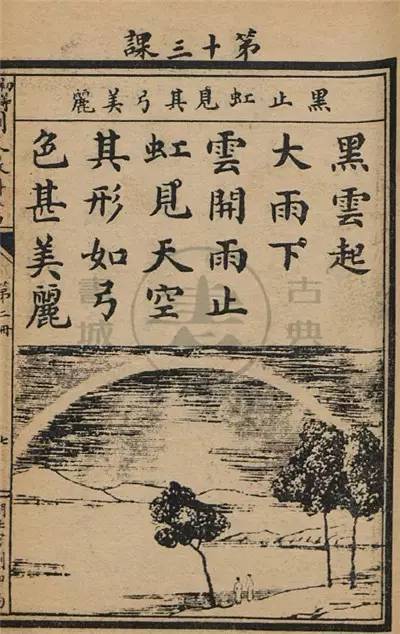 第十三課
黑止虹見其弓美麗
黑雲起
大雨下
雲開雨止
虹見天空
其形如弓
色甚美麗
第二冊
七
古典
書城